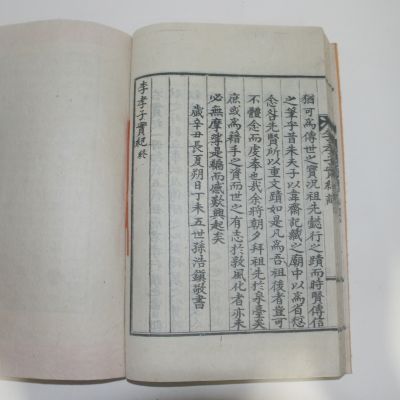 李孝子實紀
猶可爲傳世之實況祖先懿行之蹟而時賢傳信
之筆乎昔朱夫子以韋齋記藏之廟中以爲省愆
念咎先賢所以重文蹟如是凡爲吾祖後者豈可
不體念而虔奉也我余將朝夕拜祖先於泉臺矣
庶或爲藉手之資而世之有志於敦風化者亦未
必無摩挲是編而感歎興起矣
歲辛丑長夏朔日丁未五世孫浩鎭敬書
李孝子實紀終